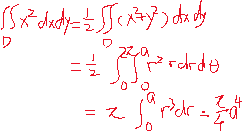 ∬_D x² dxdy = 1/2 ∬_D (x²+y²) dxdy
= 1/2 ∫₀^{2π} ∫₀^a r² · r dr dθ
= π ∫₀^a r³ dr = π/4 a⁴